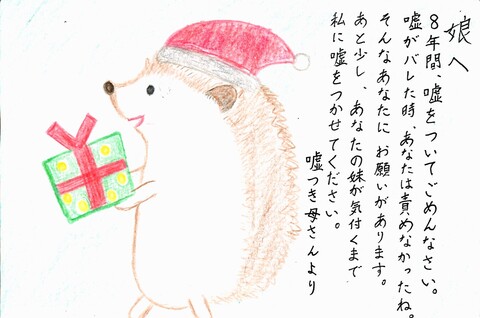 娘へ
8年間、嘘をついてごめんなさい。
嘘がバレた時、あなたは責めなかったね。
そんなあなたに お願いがあります。
あと少し、あなたの妹が気付くまで
私に嘘をつかせてください。
嘘つき母さんより